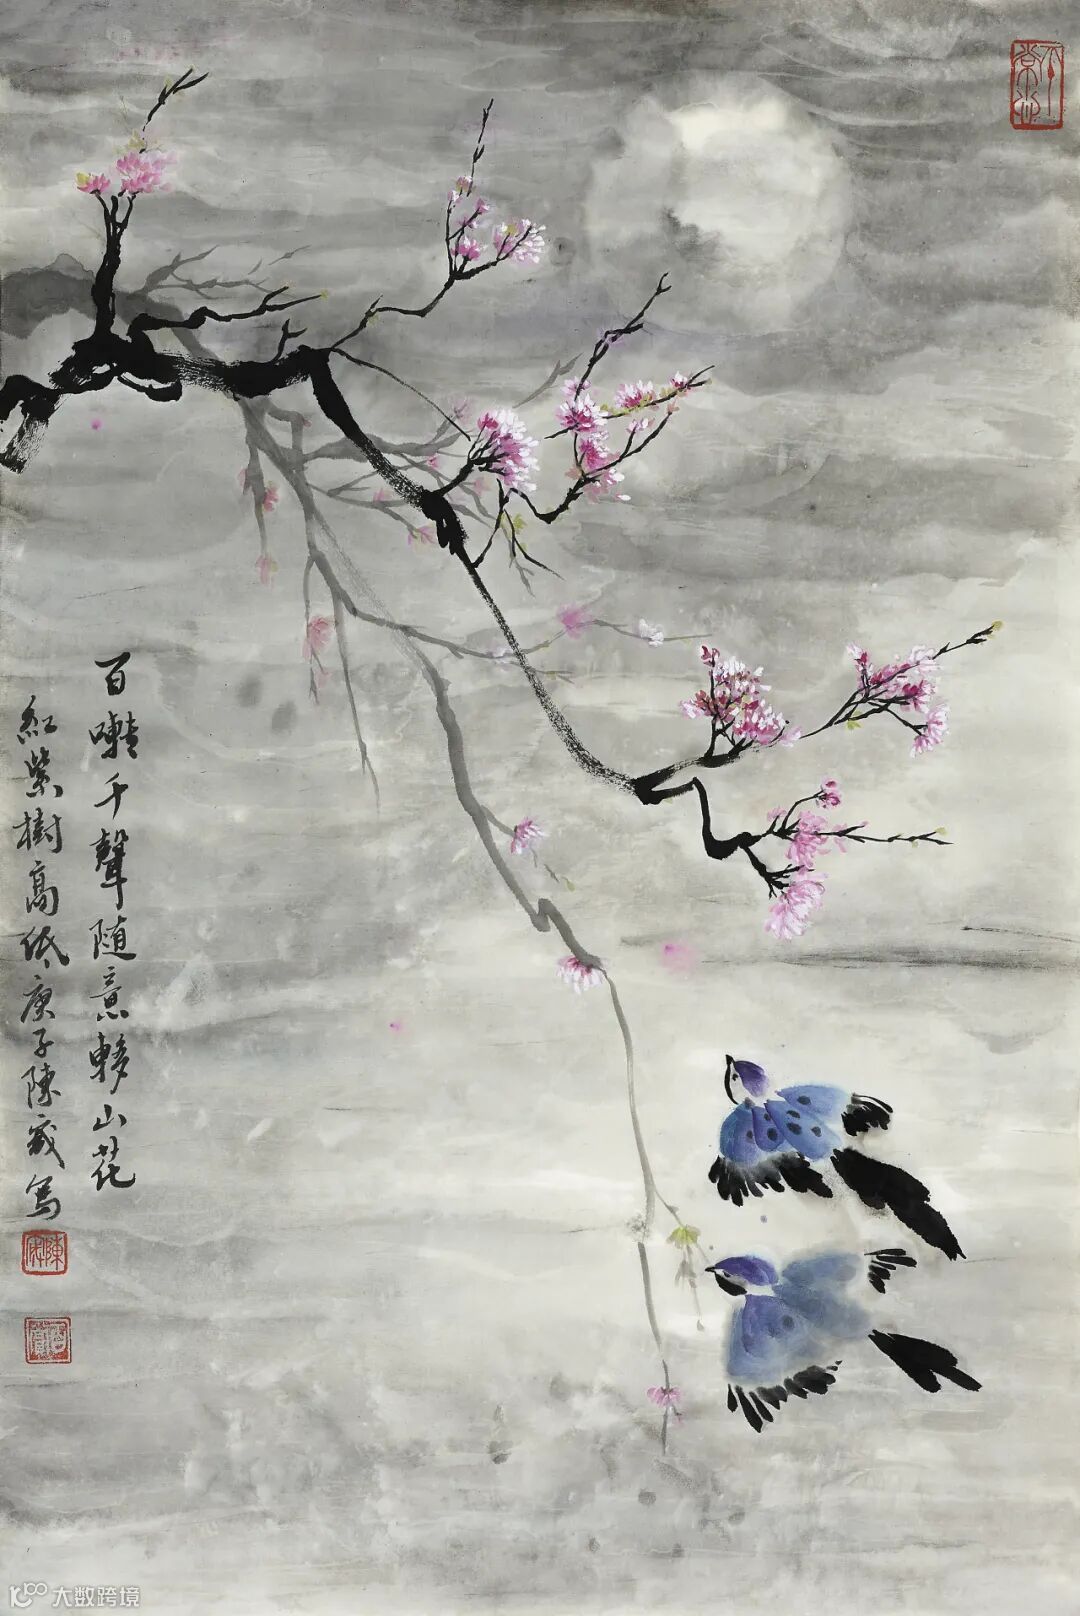 百囀千聲随意移山花
紅紫樹高低庚子陳寫
大数跨境